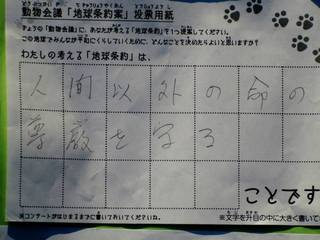 動物会議「地球条約案」投票用紙
きょうの「動物会議」に、あなたが考える「地球条約」を1つ提案してください。
この地球でみんなが平和にくらしていくために、どんなことを決めたらよいと思いますか?
わたしの考える「地球条約」は、
人間以外の命の
尊厳を守る
ことです
※コンサートがはじまるまでに書いておいてくださいね。
※文字を升目の中に大きく書いて